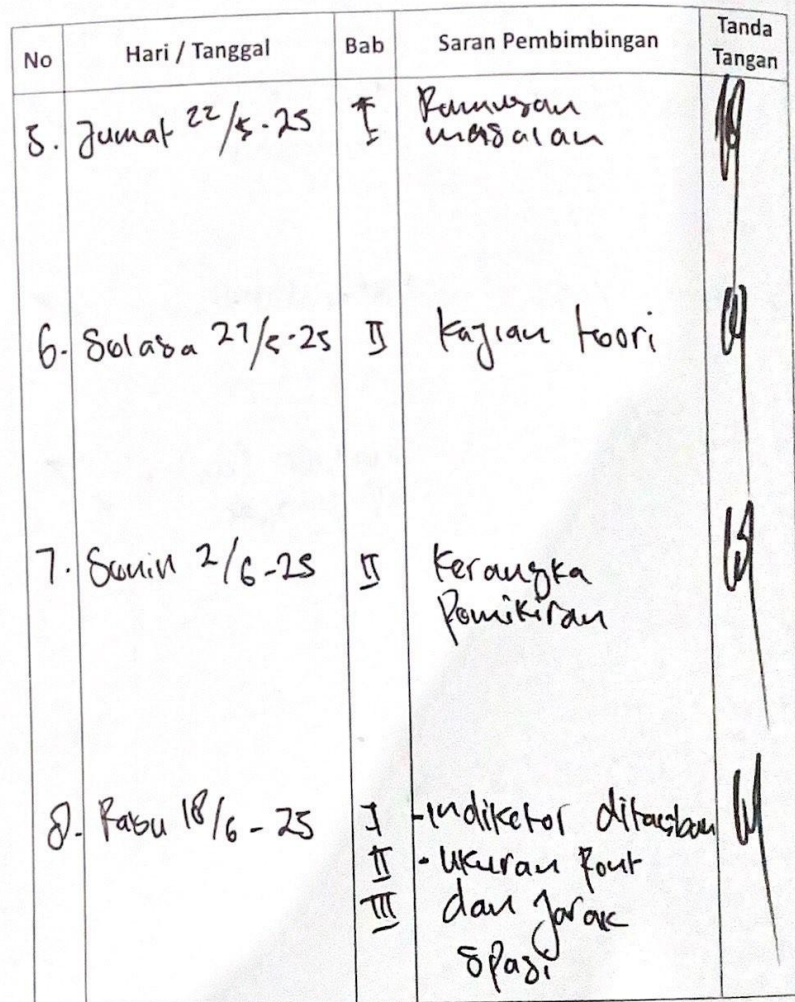 No Hari / Tanggal Bab Saran Pembimbingan Tanda Tangan
5. Jumat 22/5-25 I Rumusan
masalah
6. Selasa 27/5-25 II Kajian teori
7. Senin 2/6-25 II Kerangka
Pemikiran
8. Rabu 18/6-25 I -indikator ditambah
II - ukuran font
III dan jarak
spasi